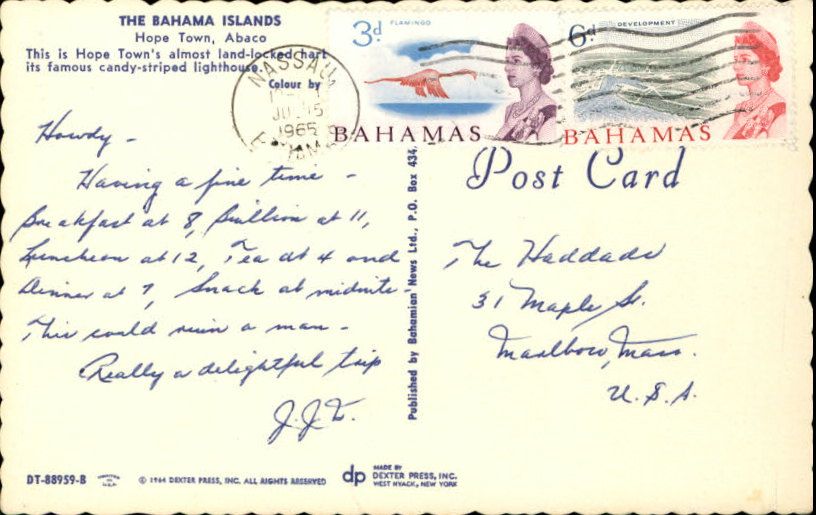 THE BAHAMA ISLANDS
Hope Town, Abaco
This is Hope Town's almost land-locked
its famous candy-striped lighthouse.
Colour by
NASSAU
1965
3d
FLAMINGO
BAHAMAS
6d
DEVELOPMENT
BAHAMAS
Howdy -
Having a fine time -
Breakfast at 8, Bullion at 11,
Luncheon at 12, Tea at 4 and
Dinner at 7, Snack at midnite -
This could ruin a man -
Really a delightful trip
Published by Bahamian News Ltd., P.O. Box 434,
Post Card
The Haddads
31 Maple St.
Marlboro, Mass.
U.S.A.
DT-88959-B
© 1964 DEXTER PRESS, INC. ALL RIGHTS RESERVED
dp
MADE BY
DEXTER PRESS, INC.
WEST NYACK, NEW YORK